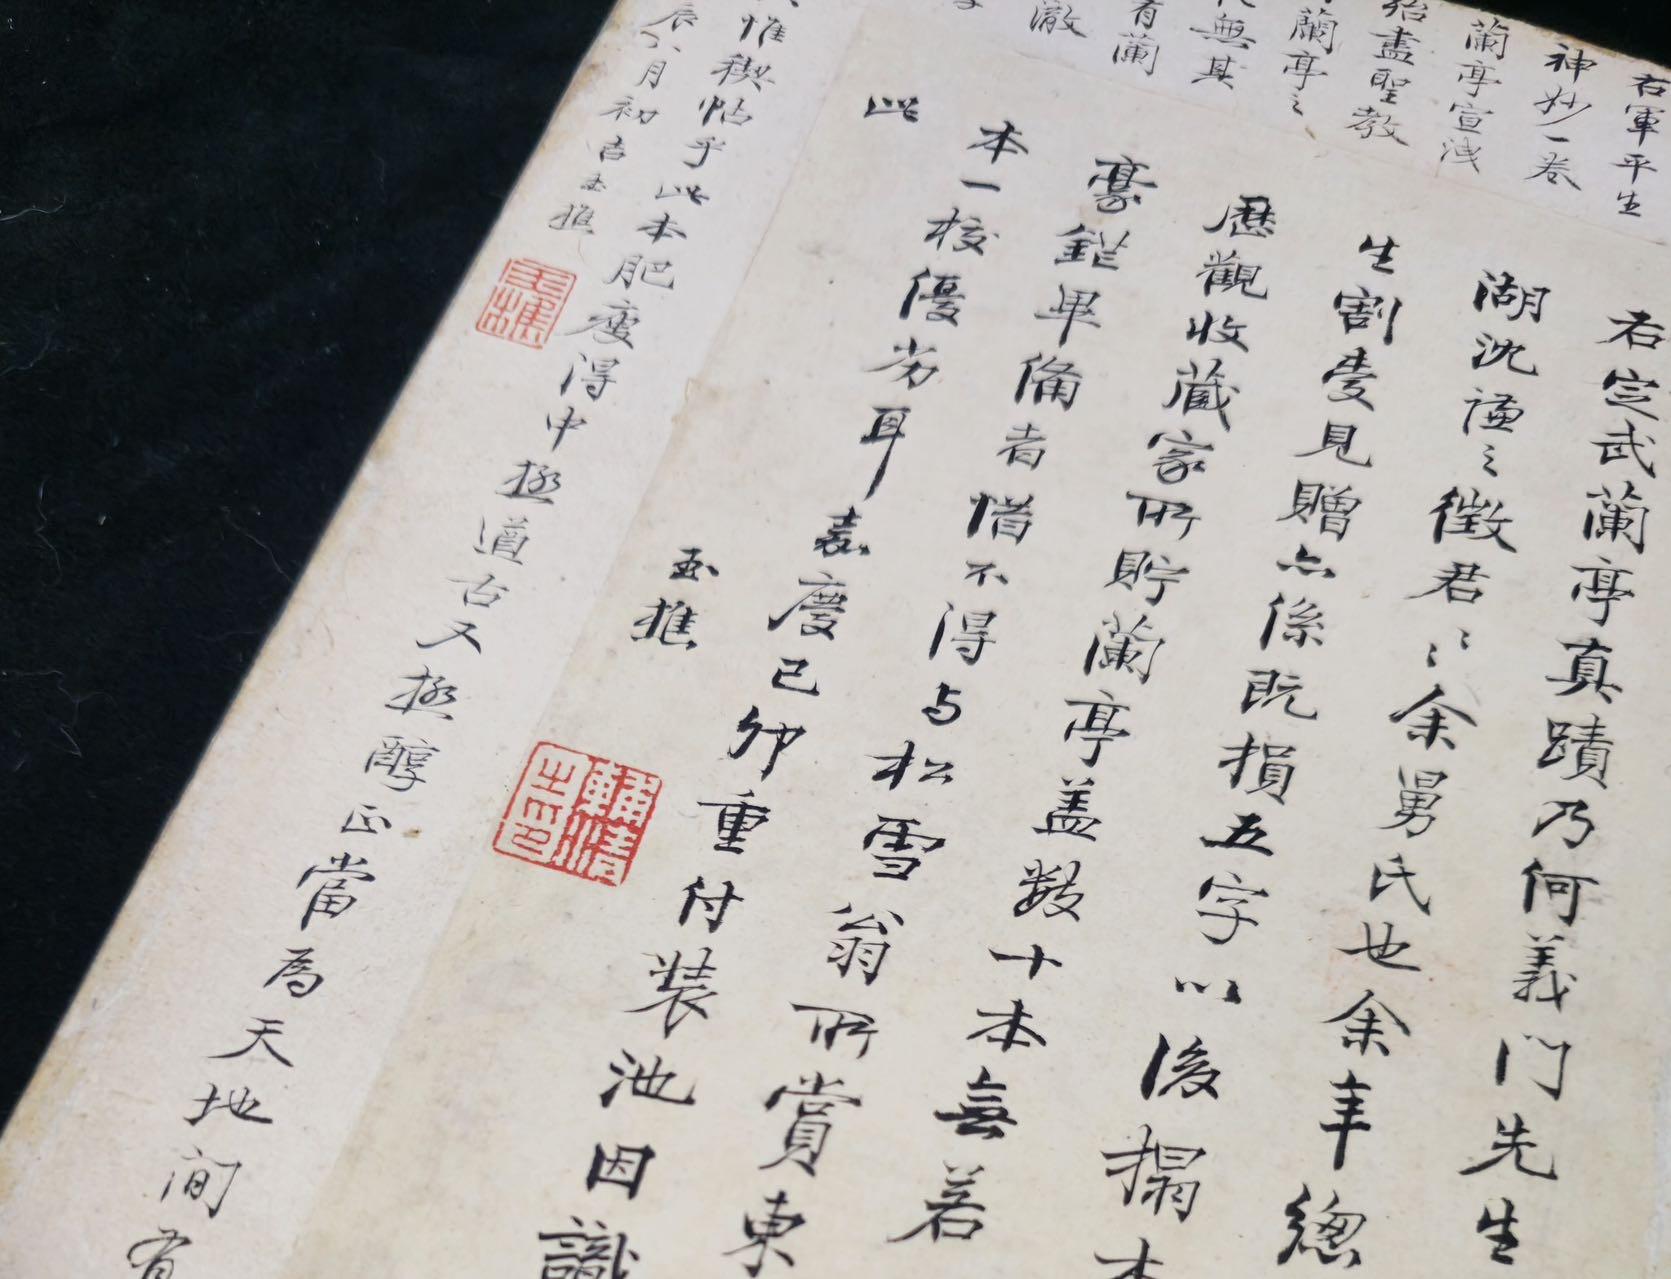 右軍平生
神妙一卷
蘭亭宣洩
殆盡聖教
蘭亭之
無其
有蘭
澈
右定武蘭亭真蹟乃何義門先生
湖沈謙之徵君之余舅氏也余年總
生割愛見贈亦係既損五字以後搨本
歷觀收藏家所貯蘭亭蓋數十本無若
豪鋩畢備者惜不得与松雪翁所賞東
本一校優劣耳嘉慶己卯重付裝池因識
此
玉樵
惟稧帖乎此本肥瘦得中極遒古又極醇正當為天地間有
辰八月初吉玉樵
玉樵